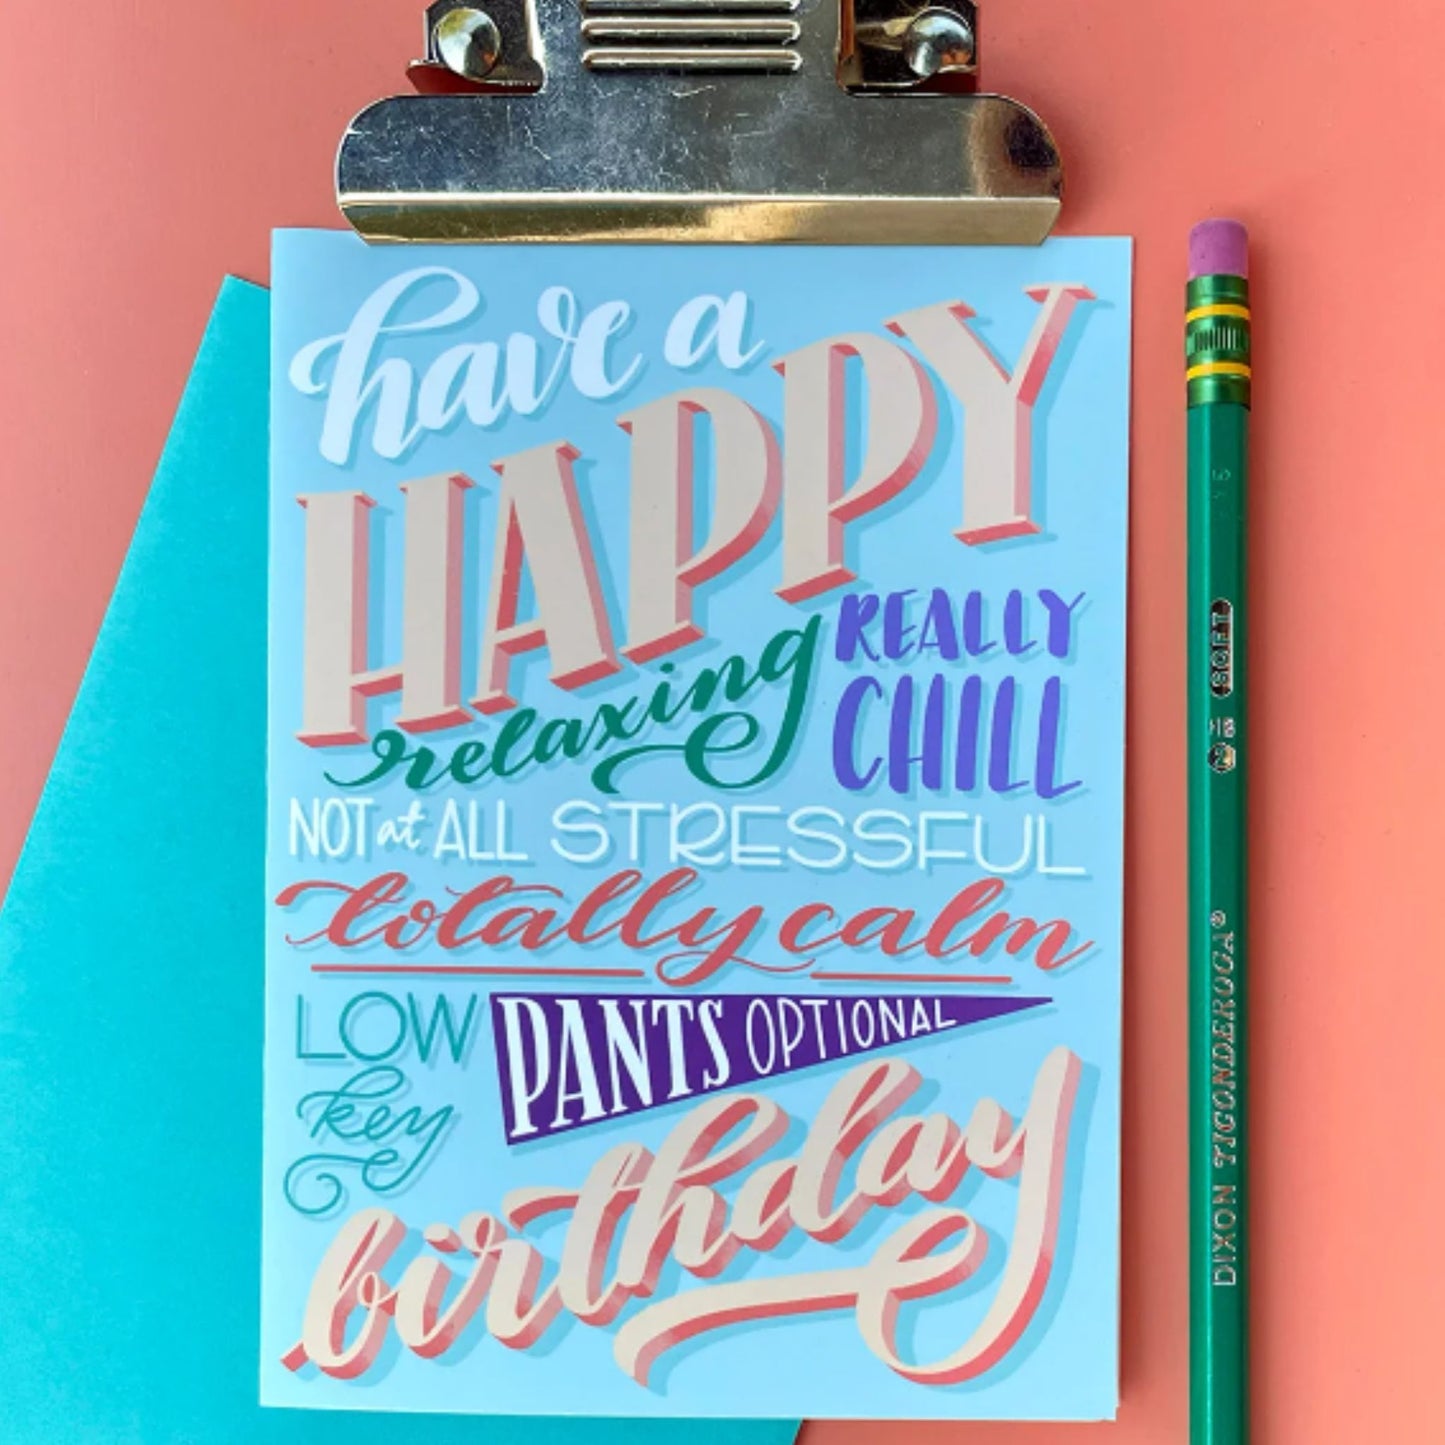 have a
HAPPY
relaxing
REALLY
CHILL
NOT at ALL STRESSFUL
totally calm
LOW
key
PANTS OPTIONAL
birthday
DIXON TICONDEROGA®
SOFT